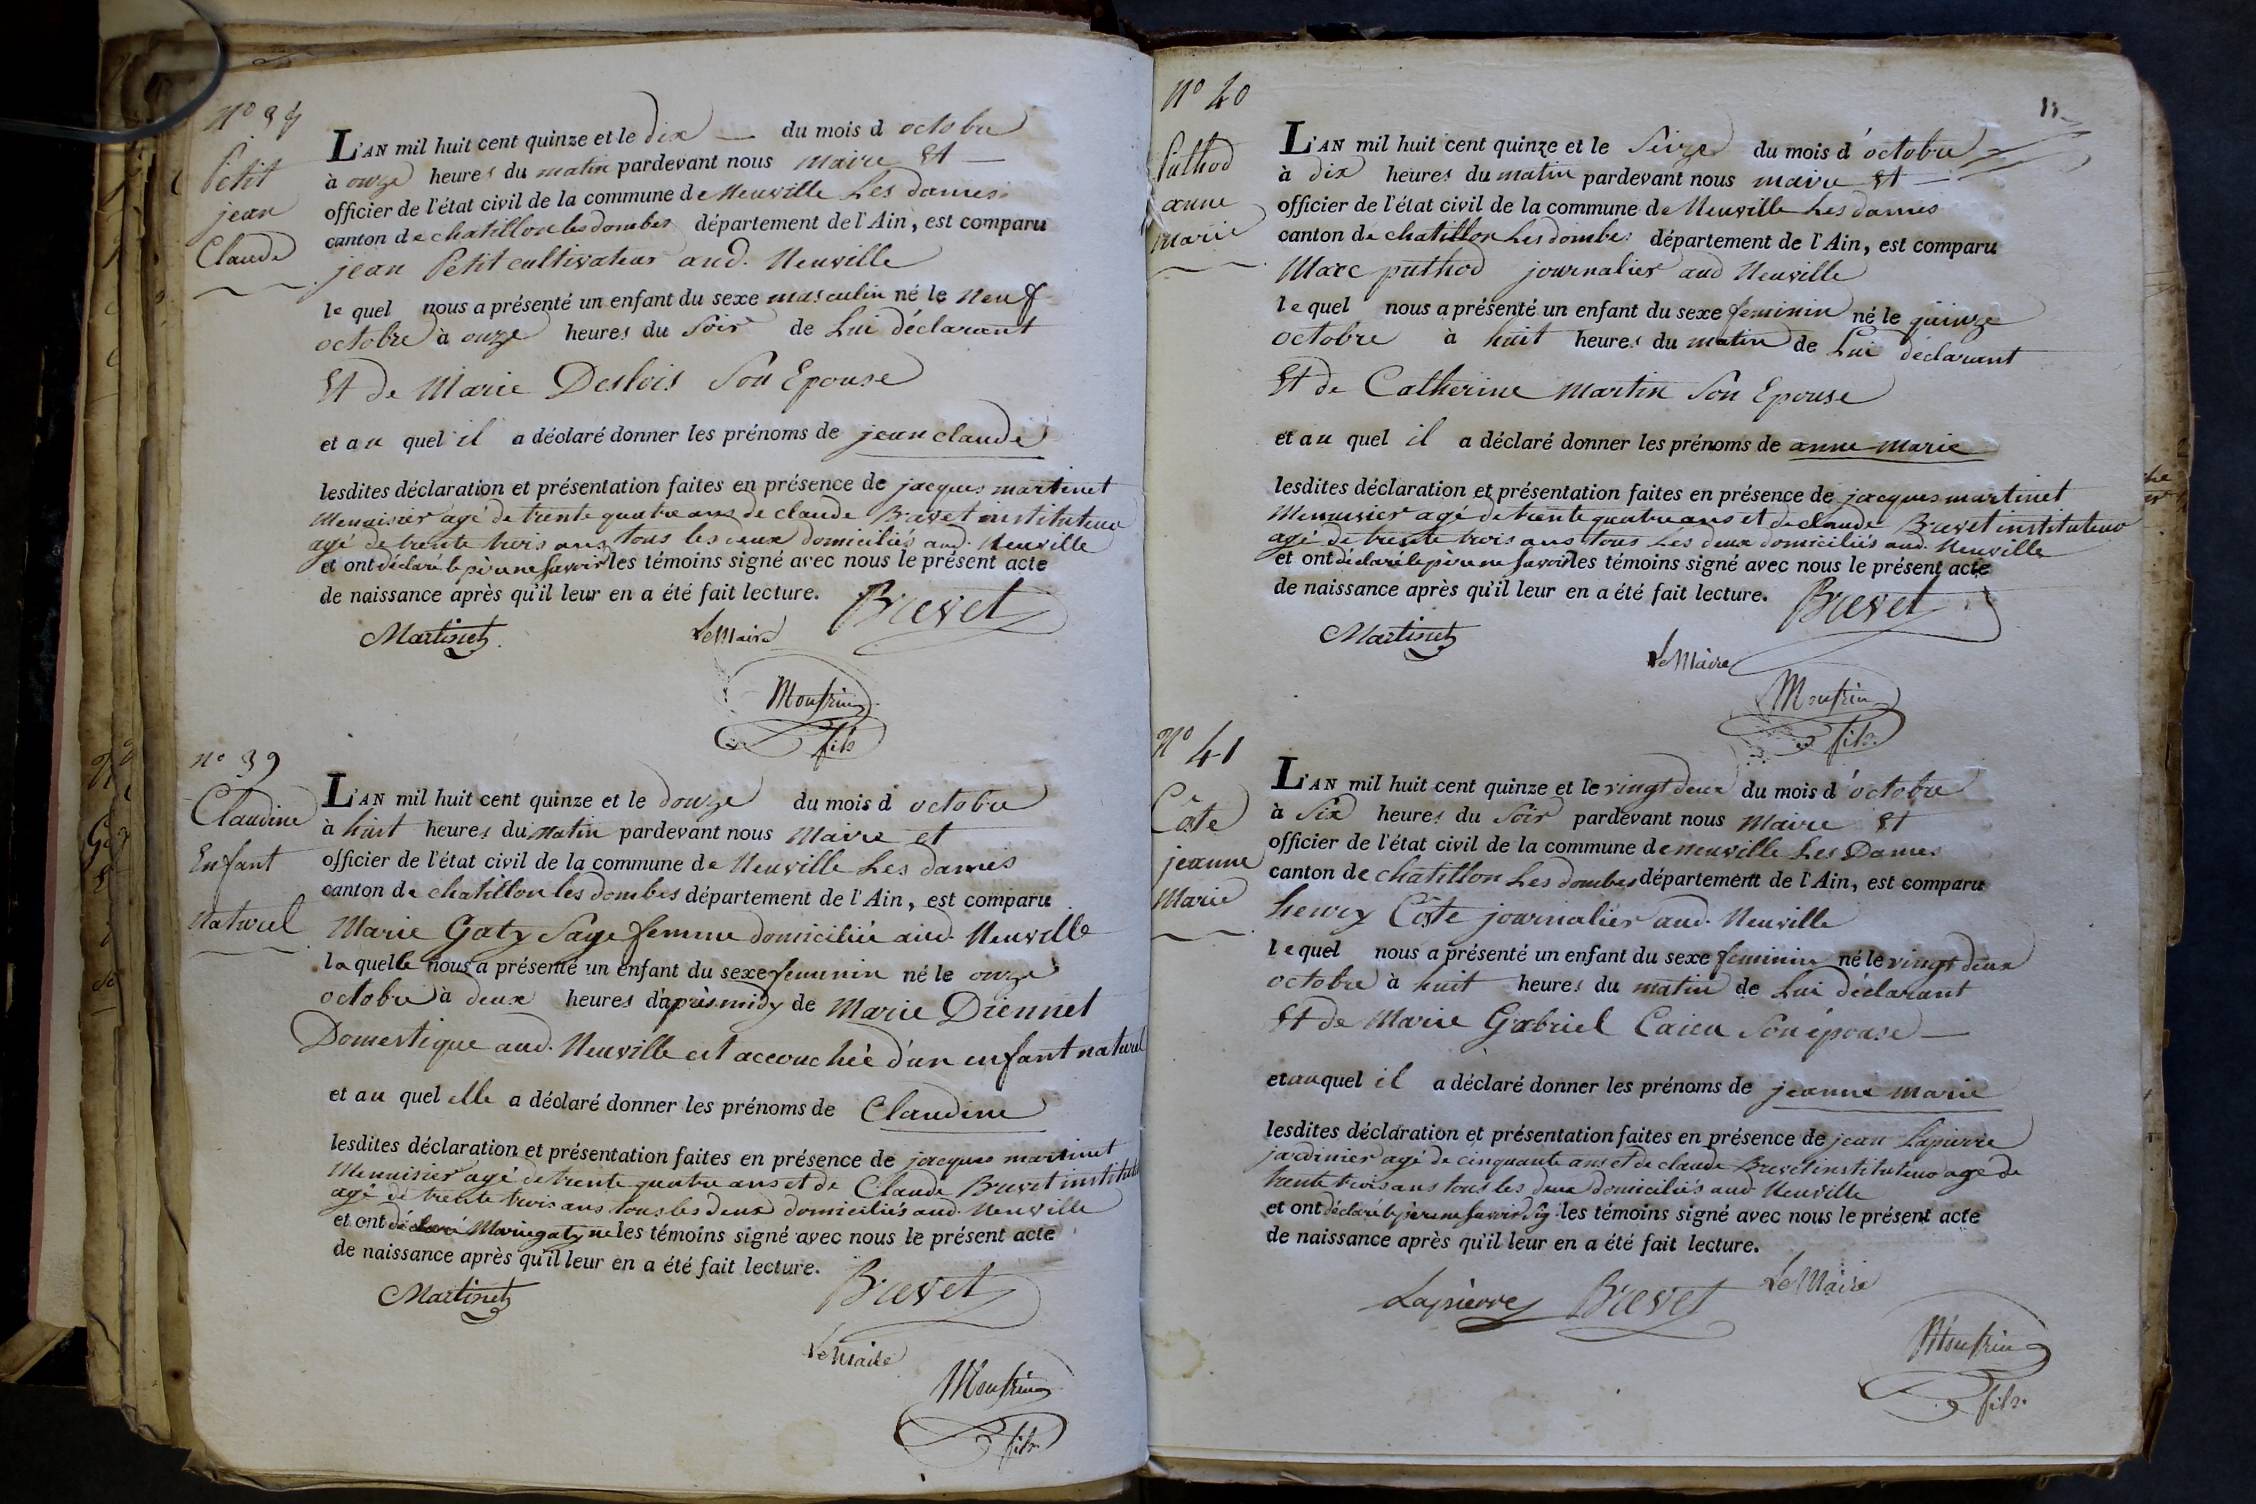 N° 38
Petit
jean
Claude
L'AN mil huit cent quinze et le dix du mois d octobre
à onze heures du matin pardevant nous maire Et
officier de l'état civil de la commune de Neuville Les dames
canton de chatillon les dombes département de l'Ain, est comparu
jean Petit cultivateur aud. Neuville
le quel nous a présenté un enfant du sexe masculin né le neuf
octobre à onze heures du Soir de Lui déclarant
Et de Marie Desbois Son Epouse
et au quel il a déclaré donner les prénoms de jean claude
lesdites déclaration et présentation faites en présence de jacques martinet
Menuisier agé de trente quatre ans de claude Brevet instituteur
agé de trente trois ans tous les deux domiciliés aud. Neuville
et ont déclaré le père ne savoir les témoins signé avec nous le présent acte
de naissance après qu'il leur en a été fait lecture.
Brevet
Martinet
Le Maire
Monfrin
fils
n° 39
Claudine
Enfant
Naturel
L'AN mil huit cent quinze et le douze du mois d octobre
à huit heures du matin pardevant nous Maire et
officier de l'état civil de la commune de Neuville Les dames
canton de chatillon les dombes département de l'Ain, est comparu
Marie Gaty Sage femme domiciliée aud. Neuville
la quelle nous a présenté un enfant du sexe feminin né le onze
octobre à deux heures d'après midy de Marie Diennet
Domestique aud. Neuville est accouchée d'un enfant naturel
et au quel elle a déclaré donner les prénoms de Claudine
lesdites déclaration et présentation faites en présence de jacques martinet
Menuisier agé de trente quatre ans et de Claude Brevet institut
agé de trente trois ans tous les deux domiciliés aud. Neuville
et ont déclaré Marie gaty ne les témoins signé avec nous le présent acte
de naissance après qu'il leur en a été fait lecture.
Martinet
Brevet
Le Maire
Monfrin
fils
N° 40
Puthod
anne
marie
11
L'AN mil huit cent quinze et le Seize du mois d'octobre
à dix heures du matin pardevant nous maire Et
officier de l'état civil de la commune de Neuville Les dames
canton de chatillon Les dombes département de l'Ain, est comparu
Marc puthod journalier aud Neuville
le quel nous a présenté un enfant du sexe feminin né le quinze
octobre à huit heures du matin de Lui déclarant
Et de Catherine Martin Son Epouse
et au quel il a déclaré donner les prénoms de anne marie
lesdites déclaration et présentation faites en présence de jacques martinet
Menuisier agé de trente quatre ans et de claude Brevet instituteur
agé de trente trois ans tous Les deux domiciliés aud. Neuville
et ont déclaré le père ne savoir les témoins signé avec nous le présent acte
de naissance après qu'il leur en a été fait lecture.
Brevet
Martinet
Le Maire
Monfrin
fils
N° 41
Côte
jeanne
Marie
L'AN mil huit cent quinze et le vingt deux du mois d'octobre
à Six heures du Soir pardevant nous Maire Et
officier de l'état civil de la commune de neuville Les Dames
canton de chatillon Les dombes département de l'Ain, est comparu
henry Côte journalier aud. Neuville
le quel nous a présenté un enfant du sexe feminin né le vingt deux
octobre à huit heures du matin de Lui déclarant
Et de Marie Gabriel Son épouse
et au quel il a déclaré donner les prénoms de jeanne marie
lesdites déclaration et présentation faites en présence de jean Lapierre
jardinier agé de cinquante ans et de claude Brevet instituteur agé de
trente trois ans tous les deux domiciliés aud. Neuville
et ont déclaré le père ne savoir sig les témoins signé avec nous le présent acte
de naissance après qu'il leur en a été fait lecture.
Lapierre Brevet Le Maire
Monfrin
fils